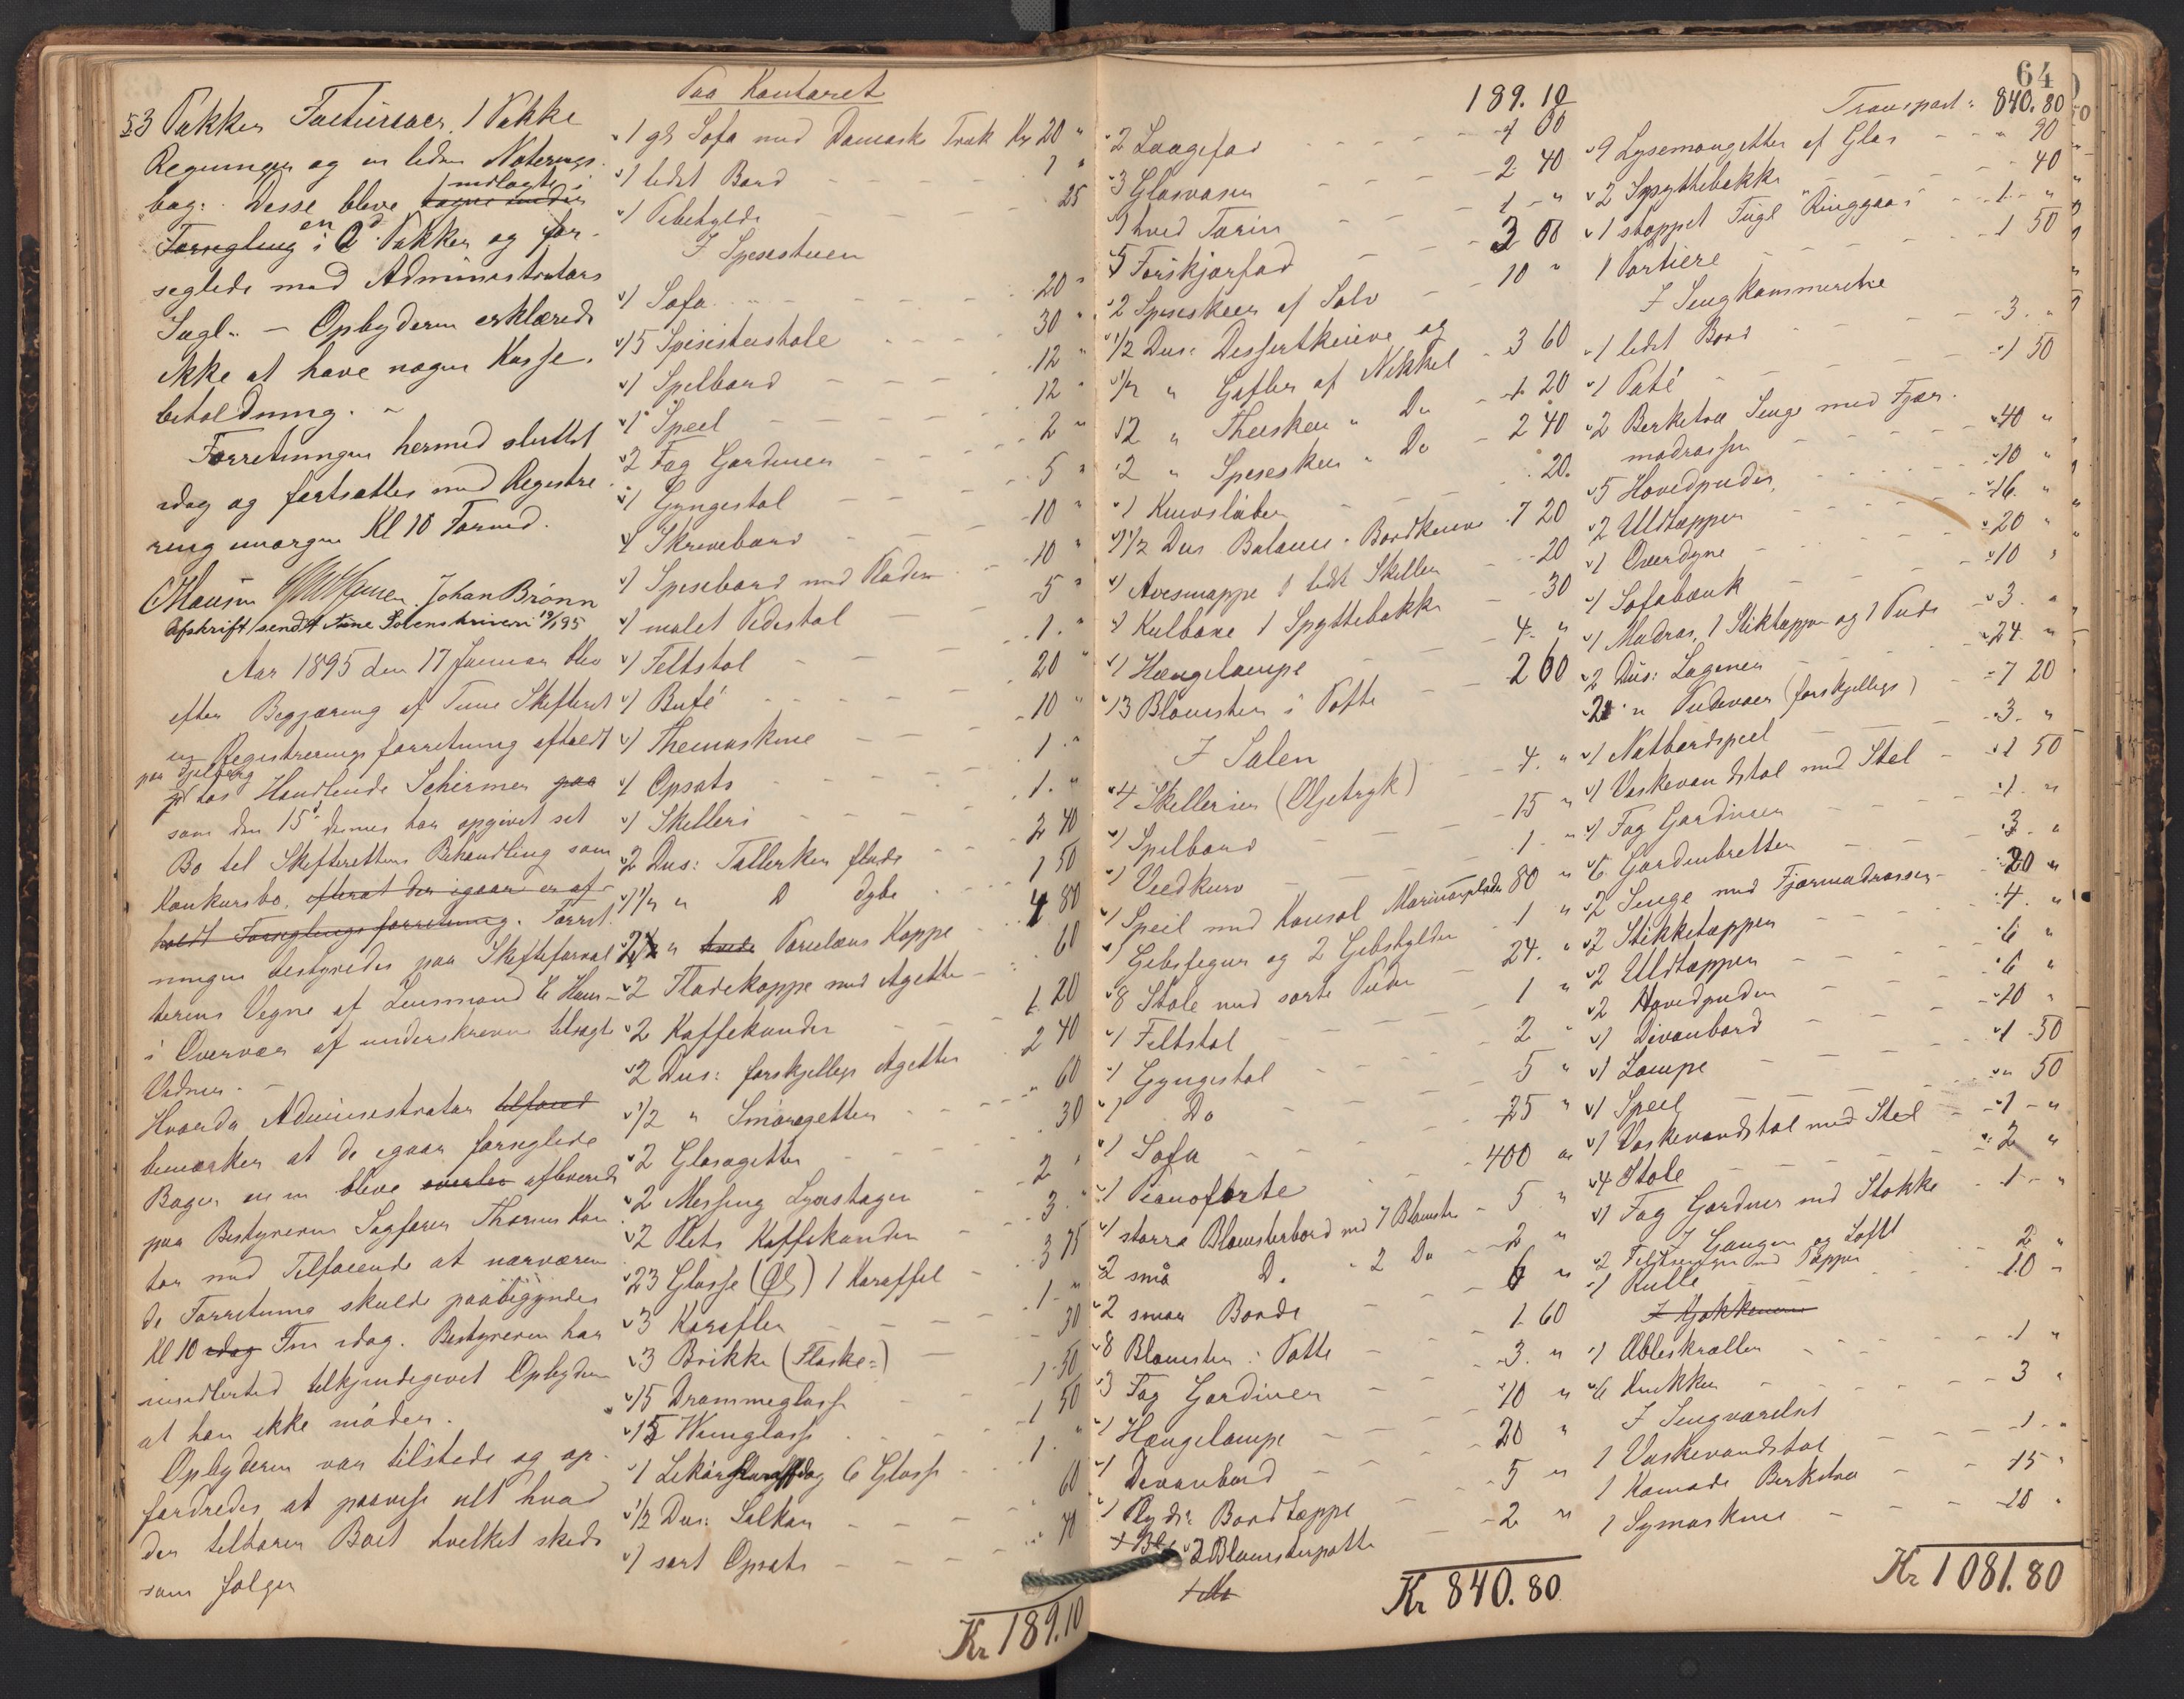 53 Pakker Facturaer, 1 Pakke
Regninger og en liden Noterings-
bog. Disse bleve indlagte i
tagne under
Forsegling i en Pakker og for-
seglede med Administrators
Segl. — Opbyderen erklærede
ikke at have nogen Kasse-
beholdning. -
Forretningen hermed sluttet
idag og fortsættes med Registre
ring imorgen Kl 10 Formd.
C Hansen Johan Brønn
Afskrift sendt Tune Sorenskriveri 19/1 95
Aar 1895 den 17 Januar blev
efter Begjæring af Tune Skifteret
en Registreringsforretning afholdt
paa hos Handlende Schirmer paa
som den 15de dennes har opgivet sit
Bo til Skifterettens Behandling som
Konkursbo, efterat der igaar er af-
holdt Forseglingsforretning. Forret-
ningen bestyredes paa Skifteforval
terens Vegne af Lensmand C Hansen
i Overvær af underskrevne tilsagte
Vidner. -
Hvorda Administrator tilføied
bemærker at de igaar forseglede
Bøger m m blive afleverede
paa Bestyreren Sagfører Thornes Kon
tor med Tilføiende at nærværen
de Forretning skulde paabegyndes
Kl 10 idag Fm idag. Bestyreren har
imidlertid tilkjendegivet Opbyderen
at han ikke møder.
Opbyderen var tilstede og op-
fordredes at paavise alt hvad
der tilhører Boet hvilket skede
som følger
Paa Kontoret
1 gl Sofa med Damaske Træk Kr 20 "
1 lidet Bord - 1 "
1 Pibehylde - 25
I Spisestuen
1 Sofa - 20 "
15 Spisestuestole - 30 "
1 Spilbord - 12 "
1 Speil - 12 "
2 Fag Gardiner - 2 "
1 Gyngestol - 5 "
1 Skrivebord - 10 "
1 Spisebord med Plader - 10 "
1 malet Pidestal - 5 "
1 Feltstol - 1. "
1 Bufé - 20 "
1 Themaskine - 10 "
1 Opsats - 1. "
1 Skilleri - 1. "
2 Dus: Tallerken flade - 2 40
1½ " D dybe - 1 50
2 " hvide Porcelæns Koppe - 4 80
2 Flødekoppe med Agetter - 60
2 Kaffekander - 1 20
2 Dus: forskjellige Agetter 2 40
½ " Smaragetter - " 60
2 Glasagetter - 30
2 Messing Lysestager - 2 "
2 Plets Kaffekander - 3. "
23 Glasse (Øl) 1 Karaffel - 3 75
3 Karafler - 1 "
3 Brikke (Flaske-) - 30
15 Drammeglasse - 1 50
15 Vinnglasse - 1 50
1 Likør og 6 Glasse - 1. "
½ Dus: Saltkar - 60
1 sort Opsats - 70
Kr 189.10
189.10
2 Langefad - 4 00
3 Glasvaser - 2 40
1 hvid Terrin - 1 "
5 Forskjærfad - 3 00
2 Spiseskeer af Sølv - 10 "
½ Dus: Dessertknive og
½ " Gafler af Nikkel - 3 60
12 " Theskeer " Do - 1 20
2 " Spiseskeer " Do - 2 40
1 Knivsliber - 20.
1½ Dus Balance-Bordknive 7 20
1 Avismappe 1 lidt Skilleri - 20
1 Kulboxe 1 Spyttebakke - 30
1 Hængelampe - 4. "
13 Blomster i Potte - 2 60
I Salen
4 Skillerier (Oljetryk) - 4. "
1 Spilbord - 15 "
1 Vedkurv - 1 "
1 Speil med Konsol Marmorplade 80 "
1 Gebsfigur og 2 Gebshylder - 1 "
8 Stole med sorte Puder - 24. "
1 Feltstol - 1 "
1 Gyngestol - 2 "
1 Do - 5 "
1 Sofa - 25 "
1 Pianoforte - 400 "
1 større Blomsterbord med 7 Blomster - 5 "
2 små D. " 2 Do - 2 "
2 smaa Borde - 6 "
8 Blomster i Potte - 1 60
3 Fag Gardiner - 3. "
1 Hængelampe - 10 "
1 Divanbord - 20 "
1 Plyds: Bordtæppe - 5 "
2 Blomsterpotte - 2 "
Kr 840.80
64
Transport: 840.80
9 Lysemangetter af Glas - " 90
2 Spyttebakke - 40
1 stoppet Fugl "Ringgaas" - 1 - "
1 Portiere - 1 50
I Sengkammerene
1 lidet Bord - 3. "
1 Paté - 1 50
2 Berketræ Senge med Fjær-
madrasser - 40 "
5 Hovedpuder - 10 "
2 Uldtæpper - 16. "
1 Overdyne - 20 "
1 Sofabænk - 10 "
1 Madras, 1 Stiktæppe og 1 Pude - 3. "
2 Dus: Lagener - 24. "
2 " Pudevaer (forskjellige) - 7 20
1 Natbordspeil - 3. "
1 Vaskevandstol med Stel - 1 50
1 Fag Gardiner - 1. "
6 Gardinbretter - 3. "
2 Senge med Fjærmadrasser - 20 "
2 Stikketæpper - 4. "
2 Uldtæpper - 6 "
2 Hovedpuder - 6 "
1 Divanbord - 10 "
1 Lampe - 1 50
1 Speil - " 50
1 Vaskevandstol med Stel - 1 - "
4 Stole - 2 "
1 Fag Gardiner med Stokke - 1 - "
I Gangen og Loftet
2 med Tæpper - 2 "
1 Rulle - 10 "
I Kjøkkenen
1 Ableskræller - 1 "
6 Krukker - 3 "
I Sengværelset
1 Vaskevandstol - 1. "
1 Komode Berketræ - 15 "
1 Symaskine - 20 "
Kr 1081.80